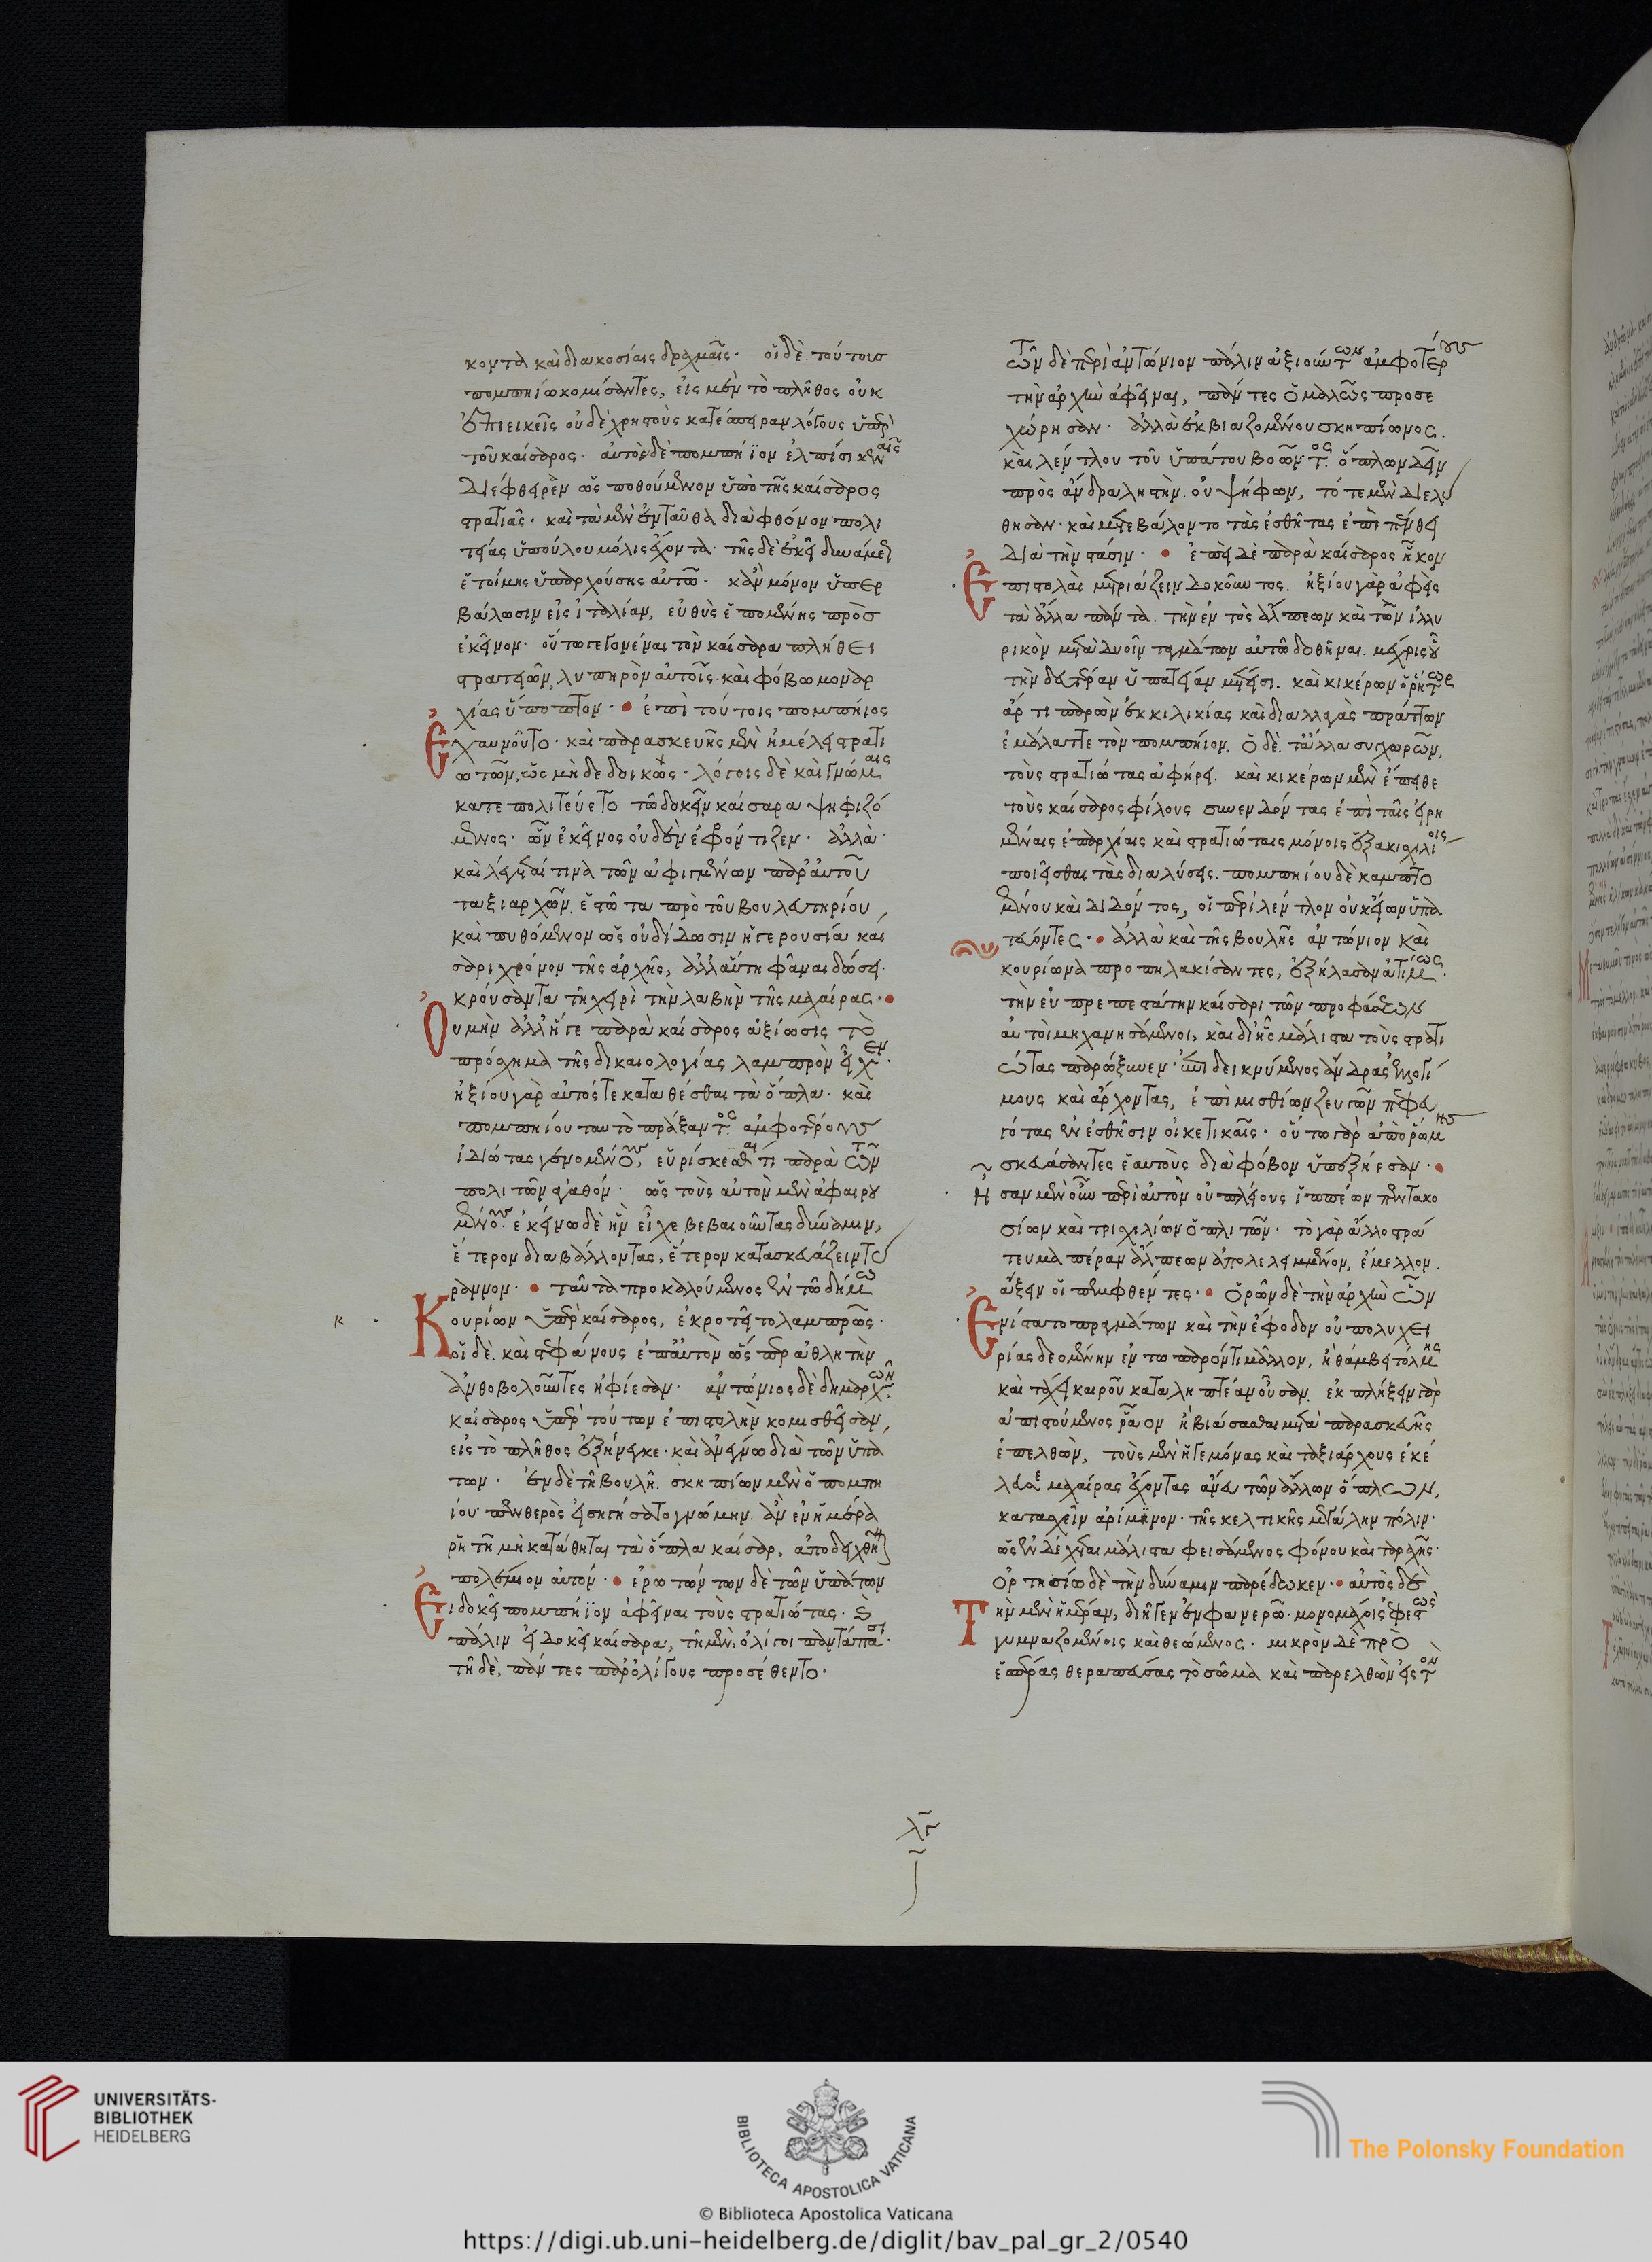 κοντα καὶ διακοσίαις δραχμαῖς· οἱ δὲ τούτους
πομπηίω κομίσαντες, εἰς μὲν τὸ πλῆθος οὐκ
ἐπιεικεῖς οὐδὲ χρηστοὺς κατέσπειραν λόγους ὑπὲρ
τοῦ καίσαρος· αὐτὸς δὲ πομπήϊον ἐλπίσι κεναῖς
διέφθειρεν ὡς ποθούμενον ὑπὸ τῆς καίσαρος
στρατιᾶς· καὶ τὰ μὲν ἐνταῦθα διὰ φθόνον πολι
τείας ὑπούλου μόλις ἔχοντα· τῆς δὲ ἐκεῖ δυνάμεως
ἑτοίμης ὑπαρχούσης αὐτῶ· κἂν μόνον ὑπερ
βάλωσιν εἰς ἰταλίαν, εὐθὺς ἐπομένης πρὸς
ἐκεῖνον· οὕτω γεγονέναι τὸν καίσαρα πλήθει
στρατειῶν, λυπηρὸν αὐτοῖς· καὶ φόβω μοναρ
χίας ὕποπτον· ἐπὶ τούτοις πομπήιος
Ἐχαυνοῦτο· καὶ παρασκευῆς μὲν ἠμέλει στρατι
ωτῶν, ὡς μὴ δεδοικώς· λόγοις δὲ καὶ γνώμαις
κατεπολιτεύετο τῶ δοκεῖν καίσαρα ψηφιζό
μενος· ὧν ἐκεῖνος οὐδὲν ἐφρόντιζεν· ἀλλὰ
καὶ λέγεταί τινα τῶν ἀφιγμένων παρ' αὐτοῦ
ταξιαρχῶν ἑστῶτα πρὸ τοῦ βουλευτηρίου
καὶ πυθόμενον ὡς οὐ δίδωσιν ἡ γερουσία καί
σαρι χρόνον τῆς ἀρχῆς, ἀλλ' αὕτη φάναι δώσει·
κρούσαντα τῆ χειρὶ τὴν λαβὴν τῆς μαχαίρας·
Οὐ μὴν ἀλλ' ἥ γε παρὰ καίσαρος ἀξίωσις τὸ
πρόσχημα τῆς δικαιολογίας λαμπρὸν εἶχεν·
ἠξίου γὰρ αὐτός τε καταθέσθαι τὰ ὅπλα· καὶ
πομπηίου ταυτὸ πράξαντος· ἀμφοτέρους
ἰδιώτας γενομένους, εὑρίσκεσθαί τι παρὰ τῶν
πολιτῶν ἀγαθόν· ὡς τοὺς αὐτὸν μὲν ἀφαιρου
μένους ἐκείνω δὲ ἣν εἶχε βεβαιοῦντας δύναμιν,
ἕτερον διαβάλλοντας, ἕτερον κατασκευάζειν τύ
ραννον· ταῦτα προκαλούμενος ἐν τῶ δήμω
Κουρίων ὑπὲρ καίσαρος, ἐκροτεῖτο λαμπρῶς·
οἱ δὲ καὶ στεφάνους ἐπ' αὐτὸν ὥσπερ ἀθλητὴν
ἀνθοβολοῦντες ἠφίεσαν· ἀντώνιος δὲ δημαρχῶν
καίσαρος ὑπὲρ τούτων ἐπιστολὴν κομισθεῖσαν,
εἰς τὸ πλῆθος ἐξήνεγκε· καὶ ἀνέγνω διὰ τῶν ὑπά
των· ἐν δὲ τῆ βουλῆ σκηπίων μὲν ὁ πομπη
ίου πενθερὸς εἰσηγήσατο γνώμην ἂν ἐν ἡμέρα
ῥητῆ μὴ κατάθηται τὰ ὅπλα καίσαρ, ἀποδειχθῆναι
πολέμιον αὐτόν· ἐρωτώντων δὲ τῶν ὑπάτων
Εἰ δοκεῖ πομπήϊον ἀφεῖναι τοὺς στρατιώτας· καὶ
πάλιν εἰ δοκεῖ καίσαρα, τῆ μὲν, ὀλίγοι παντάπασι·
τῆ δὲ, πάντες παρ' ὀλίγους προσέθεντο·
Τῶν δὲ περὶ ἀντώνιον πάλιν ἀξιούντων ἀμφοτέρους
τὴν ἀρχὴν ἀφεῖναι, πάντες ὁμαλῶς προσε
χώρησαν· ἀλλὰ ἐκβιαζομένου σκηπίωνος·
καὶ λέντλου τοῦ ὑπάτου βοῶντος ὅπλων δεῖν
πρὸς ἄνδρα ληστὴν οὐ ψήφων, τότε μὲν διελύ
θησαν· καὶ μετεβάλοντο τὰς ἐσθῆτας ἐπὶ πένθει
διὰ τὴν στάσιν· ἐπεὶ δὲ παρὰ καίσαρος ἧκον
Ἐπιστολαὶ μετριάζειν δοκοῦντος· ἠξίου γὰρ ἀφεὶς
τὰ ἄλλα πάντα τὴν ἐντὸς ἄλπεων καὶ τὸν ἰλλυ
ρικὸν μετὰ δυοῖν ταγμάτων αὐτῶ δοθῆναι μέχρις οὗ
τὴν δευτέραν ὑπατείαν μέτεισι· καὶ κικέρων ὁ ῥήτωρ
ἄρτι παρὼν ἐκ κιλικίας καὶ διαλλαγὰς πράττων
ἐμάλαττε τὸν πομπήιον ὁ δὲ τἄλλα συγχωρῶν,
τοὺς στρατιώτας ἀφήρει· καὶ κικέρων μὲν ἔπειθε
τοὺς καίσαρος φίλους συνενδόντας ἐπὶ ταῖς εἰρη
μέναις ἐπαρχίαις καὶ στρατιώταις μόνοις ἑξακισχιλίοις
ποιεῖσθαι τὰς διαλύσεις· πομπηίου δὲ καμπτο
μένου καὶ διδόντος, οἱ περὶ λέντλον οὐκ εἴων ὑπα
τεύοντες· ἀλλὰ καὶ τῆς βουλῆς ἀντώνιον καὶ
κουρίωνα προπηλακίσαντες, ἐξήλασαν ἀτίμως·
τὴν εὐπρεπεστάτην καίσαρι τῶν προφάσεων
αὐτοὶ μηχανησάμενοι, καὶ δι' ἧς μάλιστα τοὺς στρατι
ώτας παρώξυνεν· ἐπιδεικνύμενος ἄνδρας ἐλλογί
μους καὶ ἄρχοντας, ἐπὶ μισθίων ζευγῶν πεφευ
γότας ἐν ἐσθῆσιν οἰκετικαῖς· οὕτω γὰρ ἀπὸ ῥώμης
σκευάσαντες ἑαυτοὺς διὰ φόβον ὑπεξήεσαν·
Ἦσαν μὲν οὖν περὶ αὐτὸν οὐ πλείους ἱππέων πεντακο
σίων καὶ τρισχιλίων ὁπλιτῶν· τὸ γὰρ ἄλλο στρά
τευμα πέραν ἄλπεων ἀπολελειμμένον, ἔμελλον
ἄξειν οἱ πεμφθέντες· ὁρῶν δὲ τὴν ἀρχὴν ὧν
Ἐνίστατο πραγμάτων καὶ τὴν ἔφοδον οὐ πολυχει
ρίας δεομένην ἐν τῶ παρόντι μᾶλλον, ἢ θάμβει τόλμης
καὶ τάχει καιροῦ καταληπτέαν οὖσαν ἐκπλήξειν γὰρ
ἀπιστούμενος ῥᾶον ἢ βιάσασθαι μετὰ παρασκευῆς
ἐπελθὼν, τοὺς μὲν ἡγεμόνας καὶ ταξιάρχους ἐκέ
λευσε μαχαίρας ἔχοντας ἄνευ τῶν ἄλλων ὅπλων,
κατασχεῖν ἀρίμηνον· τῆς κελτικῆς μεγάλην πόλιν·
ὡς ἐνδέχεται μάλιστα φεισάμενος φόνου καὶ ταραχῆς·
ὁρτησίω δὲ τὴν δύναμιν παρέδωκεν· αὐτὸς δὲ
Τὴν μὲν ἡμέραν, διῆγεν ἐν φανερῶ· μονομάχοις ἐφεστὼς
γυμναζομένοις καὶ θεώμενος· μικρὸν δὲ πρὸ
ἑσπέρας θεραπεύσας τὸ σῶμα καὶ παρελθὼν εἰς τὸν
UNIVERSITÄTS-
BIBLIOTHEK
HEIDELBERG
BIBLIOTECA APOSTOLICA VATICANA
The Polonsky Foundation
© Biblioteca Apostolica Vaticana
https://digi.ub.uni-heidelberg.de/diglit/bav_pal_gr_2/0540